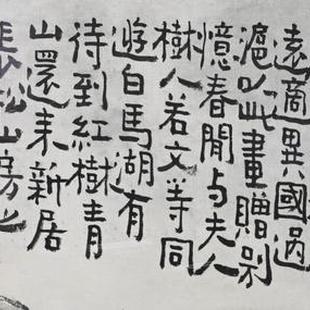 遠適異國過
滬以此畫贈別
憶春閒与夫人
樹人若文等同
遊白馬湖有
待到紅樹青
山還来新居
松山房也